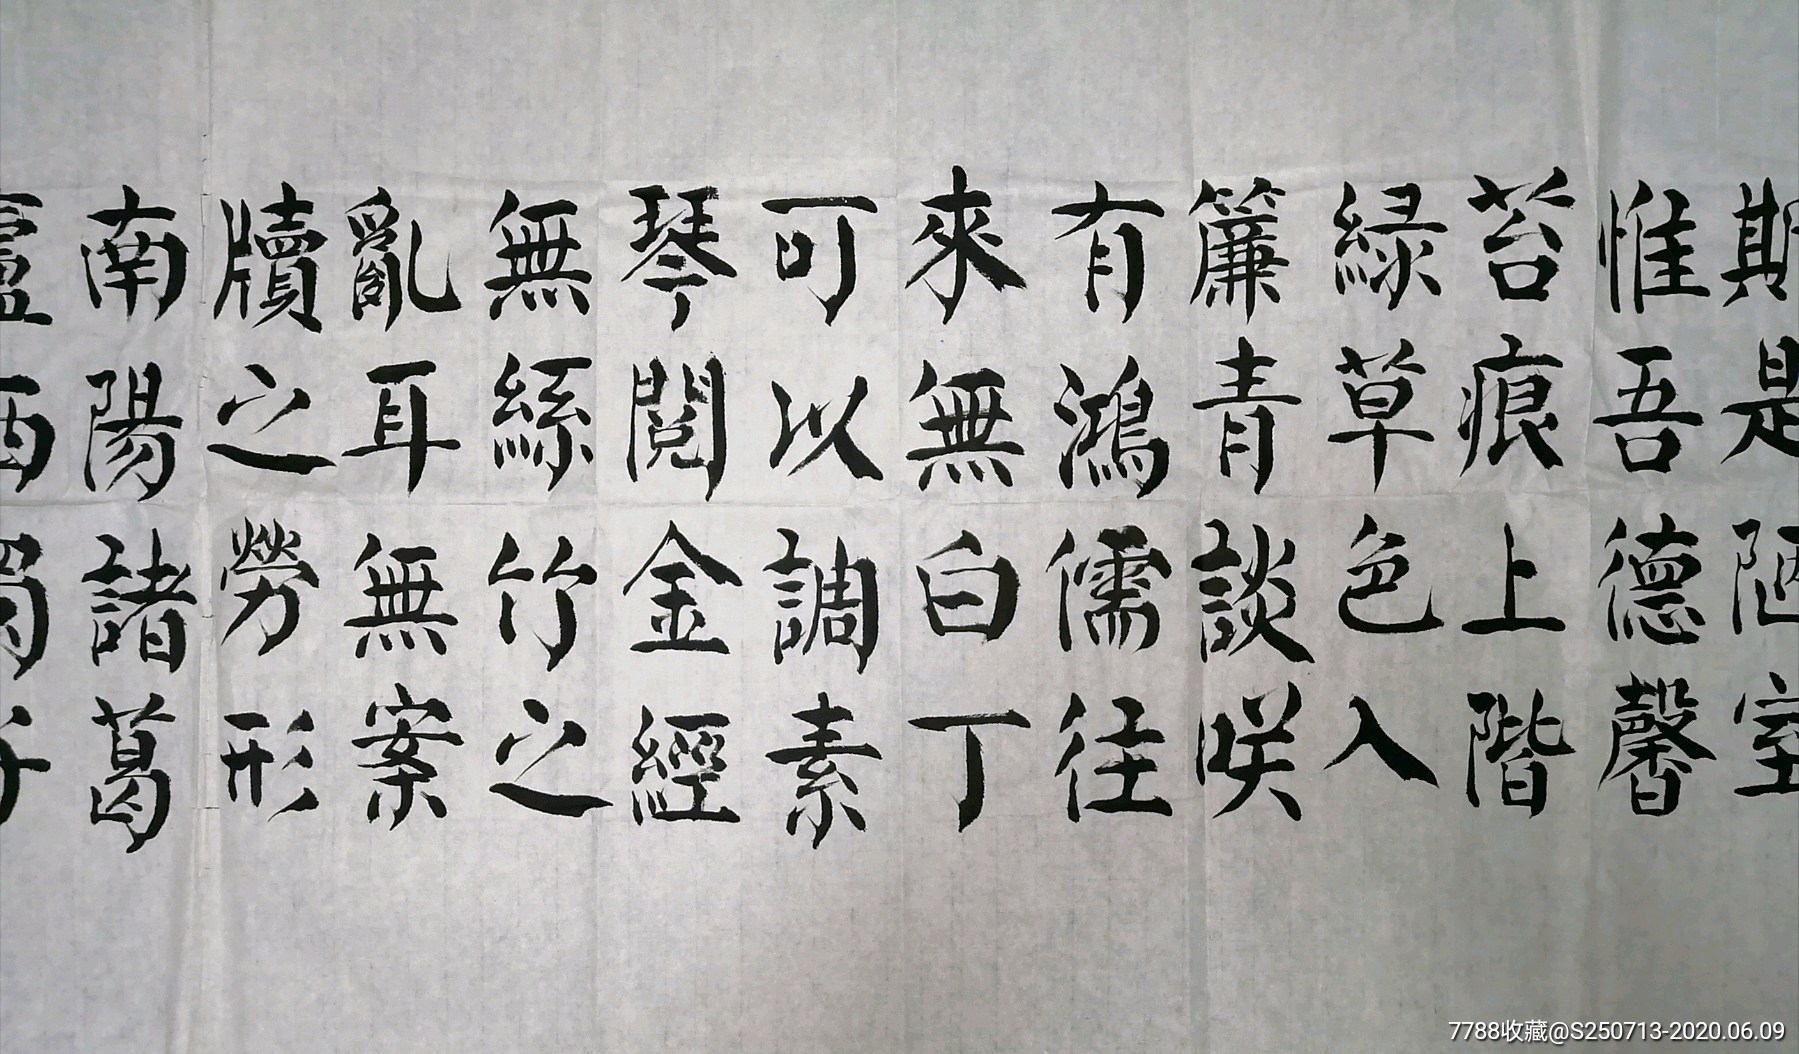 斯是陋室
惟吾德馨
苔痕上階
緑草色入
簾青談咲
有鴻儒往
來無白丁
可以調素
琴閲金經
無絲竹之
亂耳無案
牘之勞形
南陽諸葛
廬西蜀子
7788收藏@S250713-2020.06.09